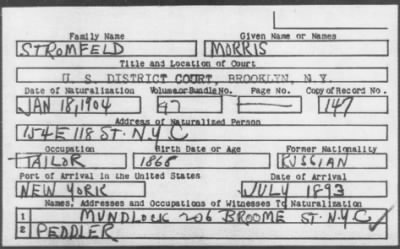 Family Name Given Name or Names
STROMFELD MORRIS
Title and Location of Court
U. S. DISTRICT COURT, BROOKLYN, N.Y.
Date of Naturalization Volume or Bundle No. Page No. Copy of Record No.
JAN 18, 1904 97 — 147
Address of Naturalized Person
154 E 118 ST. N.Y.C
Occupation Birth Date or Age Former Nationality
TAILOR 1868 RUSSIAN
Port of Arrival in the United States Date of Arrival
NEW YORK JULY 1893
Names, Addresses and Occupations of Witnesses To Naturalization
1 MUNDLOCK 206 BROOME ST. N.Y.C
2 PEDDLER